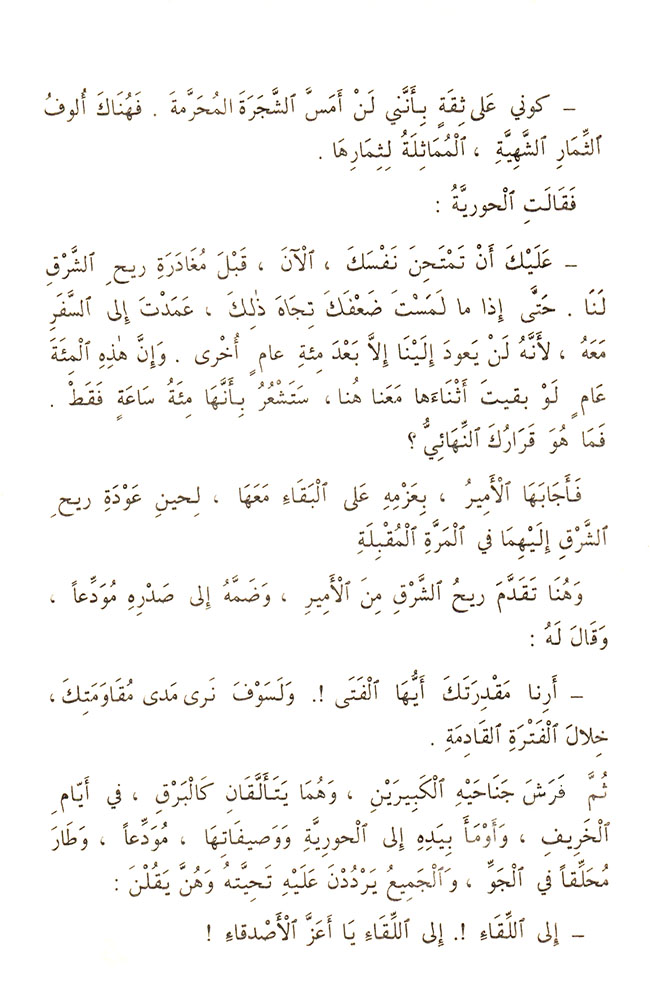 – كوني عَلى ثِقَةٍ بِأَنَّني لَنْ أَمَسَّ ٱلشَّجَرَةَ المُحَرَّمةَ . فَهُنَاكَ أُلوفُ
ٱلثِّمَارِ ٱلشَّهِيَّةِ ، ٱلْمُمَاثِلَةُ لِثِمَارِهَا .
فَقَالَتِ ٱلْحوريَّةُ :
– عَلَيْكَ أَنْ تَمْتَحِنَ نَفْسَكَ ، ٱلْآنَ ، قَبْلَ مُغَادَرَةِ ريحِ ٱلشَّرْقِ
لَنَا . حَتَّى إِذا ما لَمَسْتَ ضَعْفَكَ تِجَاهَ ذٰلِكَ ، عَمَدْتَ إِلى ٱلسَّفَرِ
مَعَهُ ، لأَنَّهُ لَنْ يَعودَ إِلَيْنَا إِلاَّ بَعْدَ مِئةِ عامٍ أُخْرى . وَإِنَّ هٰذِهِ ٱلْمِئَةَ
عَامٍ لَوْ بقيتَ أَثْنَاءَها مَعَنا هُنا ، سَتَشْعُرُ بِأَنَّهَا مِئَةُ سَاعَةٍ فَقَطْ .
فَمَا هُوَ قَرَارُكَ ٱلنِّهَائِيُّ ؟
فَأَجَابَهَا ٱلْأَمِيرُ ، بِعَزْمِهِ عَلى ٱلْبَقَاءِ مَعَهَا ، لِحينِ عَوْدَةِ ريحِ
ٱلشَّرْقِ إِلَيْهِمَا في ٱلْمَرَّةِ ٱلْمُقْبِلَةِ
وَهُنَا تَقَدَّمَ ريحُ ٱلشَّرْقِ مِنَ ٱلْأَمِيرِ ، وَضَمَّهُ إِلى صَدْرِهِ مُوَدِّعاً ،
وَقَالَ لَهُ :
– أَرِنا مَقْدِرَتَكَ أَيُّهَا ٱلْفَتَى !. وَلَسَوْفَ نَرى مَدى مُقَاوَمَتِكَ ،
خِلالَ ٱلْفَتْرَةِ ٱلقَادِمَةِ .
ثُمَّ فَرَشَ جَنَاحَيْهِ ٱلْكَبِيرَيْنِ ، وَهُمَا يَتَأَلَّقَانِ كَٱلْبَرْقِ ، في أَيّامِ
ٱلْخَرِيفِ ، وَأَوْمَأَ بِيَدِهِ إِلى ٱلْحورِيَّةِ وَوَصِيفَاتِهَا ، مُوَدِّعاً ، وَطَارَ
مُحَلِّقاً في ٱلْجَوِّ ، وَٱلْجَمِيعُ يَرْدُدْنَ عَلَيْهِ تَحِيَّتهُ وَهُنَّ يَقُلْنَ :
– إِلى ٱللِّقَاءِ !. إِلى ٱللِّقَاءِ يَا أَعَزَّ ٱلْأَصْدقاءِ !